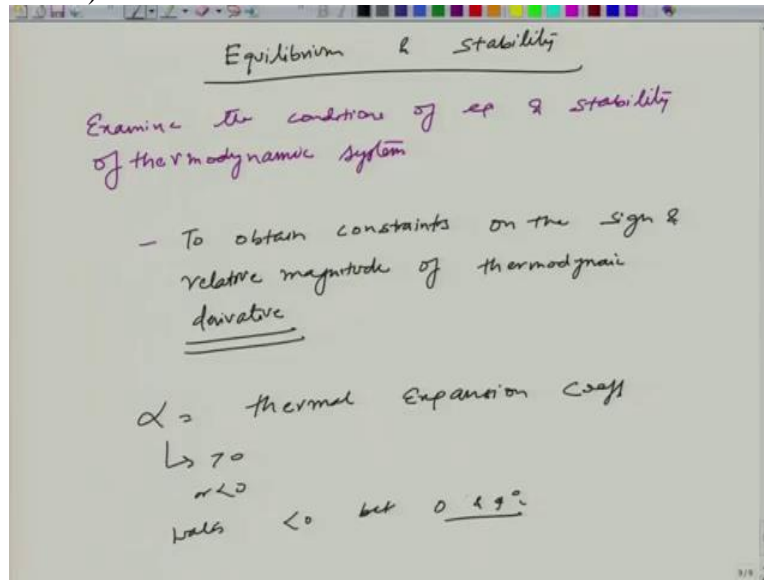 Equilibrium & Stability
Examine the conditions of eq & stability
of thermodynamic system
- To obtain constraints on the sign &
relative magnitude of thermodynaic
derivative
α = thermal Expansion Coeff
↳ >0
or <0
<0 bet 0 & 4°C
3/9